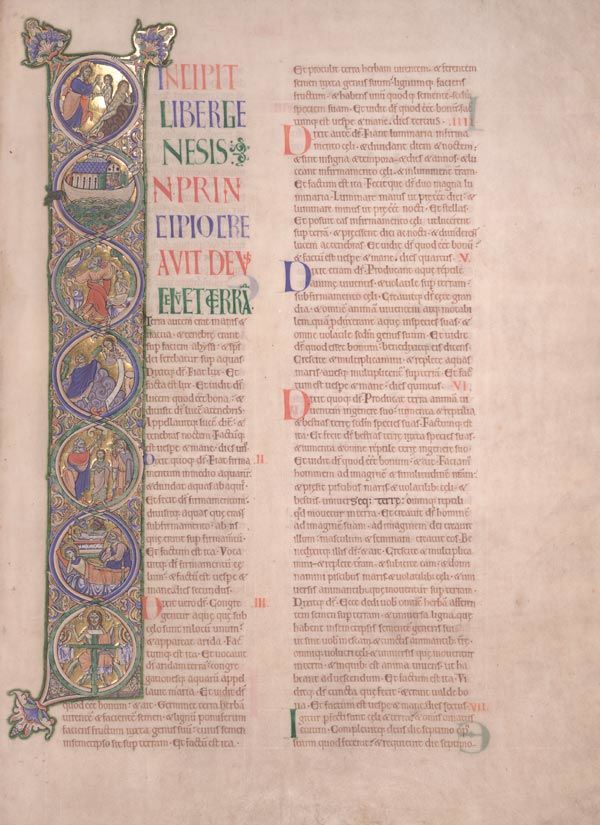 INCIPIT
LIBER GE
NESIS
N PRIN
CIPIO CRE
AVIT DEUS
CELUM ET TERRA
Terra autem erat inanis &
vacua · & tenebre erant
sup faciem abyssi · & sps
dei ferebatur sup aquas
Dixitq; ds · Fiat lux · Et
facta est lux · Et uidit ds
lucem quod eet bona · &
diuisit ds lucem a tenebris
Appellauitq; lucem diem · &
tenebras noctem · Factumq;
est uespe & mane · dies unus
Dixit quoq; ds · Fiat firma II
mentum in medio aquarum
& diuidat aquas ab aquis
Et fecit ds firmamentum
diuisitq; aquas que erant
sub firmamento ab his
que erant sup firmamentum
Et factum est ita · Voca
uitq; ds firmamentum ce
lum · & factum est uespe &
mane · dies secundus
Dixit uero ds · Congre III
gentur aque que sub
celo sunt in locum unum
& appareat arida · Fac
tum est ita · Et uocauit
ds aridam terram · congre
gationesq; aquarum appel
lauit maria · Et uidit ds
quod eet bonum · & ait · Germinet terra herbam
uirentem & facientem semen · & lignum pomiferum
faciens fructum iuxta genus suum · cuius semen
in semetipso sit sup terram · Et factum est ita ·
Et protulit terra herbam uirentem · & ferentem
semen iuxta genus suum · lignumq; faciens
fructum · & habens unum quodq; sementem sedm
speciem suam · Et uidit ds quod eet bonum · fac
tumq; est uespe & mane · dies tercius · IIII
Dixit autem ds · Fiant luminaria in firma
mento celi · & diuidant diem & noctem ·
& sint in signa & tempora · & dies & annos · & lu
ceant in firmamento celi · & illuminent terram ·
Et factum est ita · Fecitque ds duo magna lu
minaria · Luminare maius ut preeet diei · &
luminare minus ut preeet nocti · Et stellas ·
Et posuit eas in firmamento celi · ut lucerent
sup terram · & preessent diei ac nocti · & diuiderent
lucem ac tenebras · Et uidit ds quod eet bonum
& factum est uespe & mane · dies quartus · V.
Dixit etiam ds · Producant aque reptile
anime uiuentis · & uolatile sup terram
sub firmamento celi · Creauitq; ds cete gran
dia · & omnem animam uiuentem atq; motabi
lem · quam produxerant aque in species suas ·
& omne uolatile sedm genus suum · Et uidit
ds quod eet bonum · benedixitq; eis dicens
Crescite & multiplicamini · & replete aquas
maris · auesq; multiplicentur sup terram · Et fac
tum est uespe & mane · dies quintus · VI.
Dixit quoq; ds · Producat terra animam ui
uentem in genere suo · iumenta & reptilia
& bestias terre sedm species suas · Factumq; est
ita · Et fecit ds bestias terre iuxta species suas ·
& iumenta & omne reptile terre in genere suo ·
Et uidit ds quod eet bonum · & ait · Faciam
hominem ad imaginem & similitudinem nostram
& presit piscibus maris & uolatilibus celi · &
bestiis uniuerseq; terre · omniq; reptili
qd mouetur in terra · Et creauit ds hominem
ad imaginem suam · ad imaginem dei creauit
illum · masculum & feminam · creauit eos · Be
nedixitq; illis ds · & ait · Crescite & multiplica
mini · & replete terram · & subicite eam · & domi
namini piscibus maris & uolatilibus celi · & uni
uersis animantibus que mouentur sup terram
Dixitq; ds · Ecce dedi uob omnem herbam afferen
tem semen sup terram · & uniuersa ligna · que
habent in semetipsis sementem generis sui ·
ut sint uob in escam · & cunctis animantib terre
omniq; uolucri celi · & uniuersis que mouentur
in terra · & in quib est anima uiuens · ut ha
beant ad uescendum · Et factum est ita · Vi
ditq; ds cuncta que fecit · & erant ualde bo
na · Et factum est uespe & mane · dies sextus · VII.
Igitur pfecti sunt celi & terra · & omnis ornatus
eorum · Compleuitq; deus die septimo op
suum quod fecerat · & requieuit die septimo